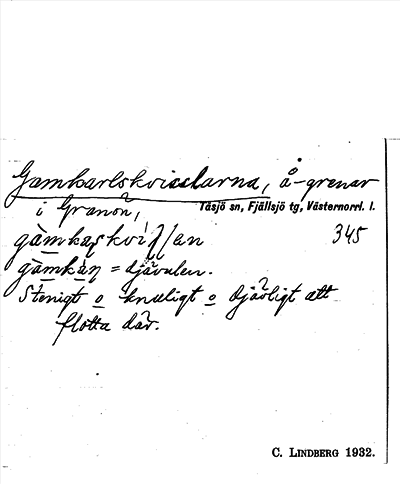 Gamkarlskvisslarna, å-grenar
i Granön,
Tåsjö sn, Fjällsjö tg, Västernorrl. l.
345
= djävulen.
Stenigt o knuligt o djävligt att
flotta där.
C. LINDBERG 1932.